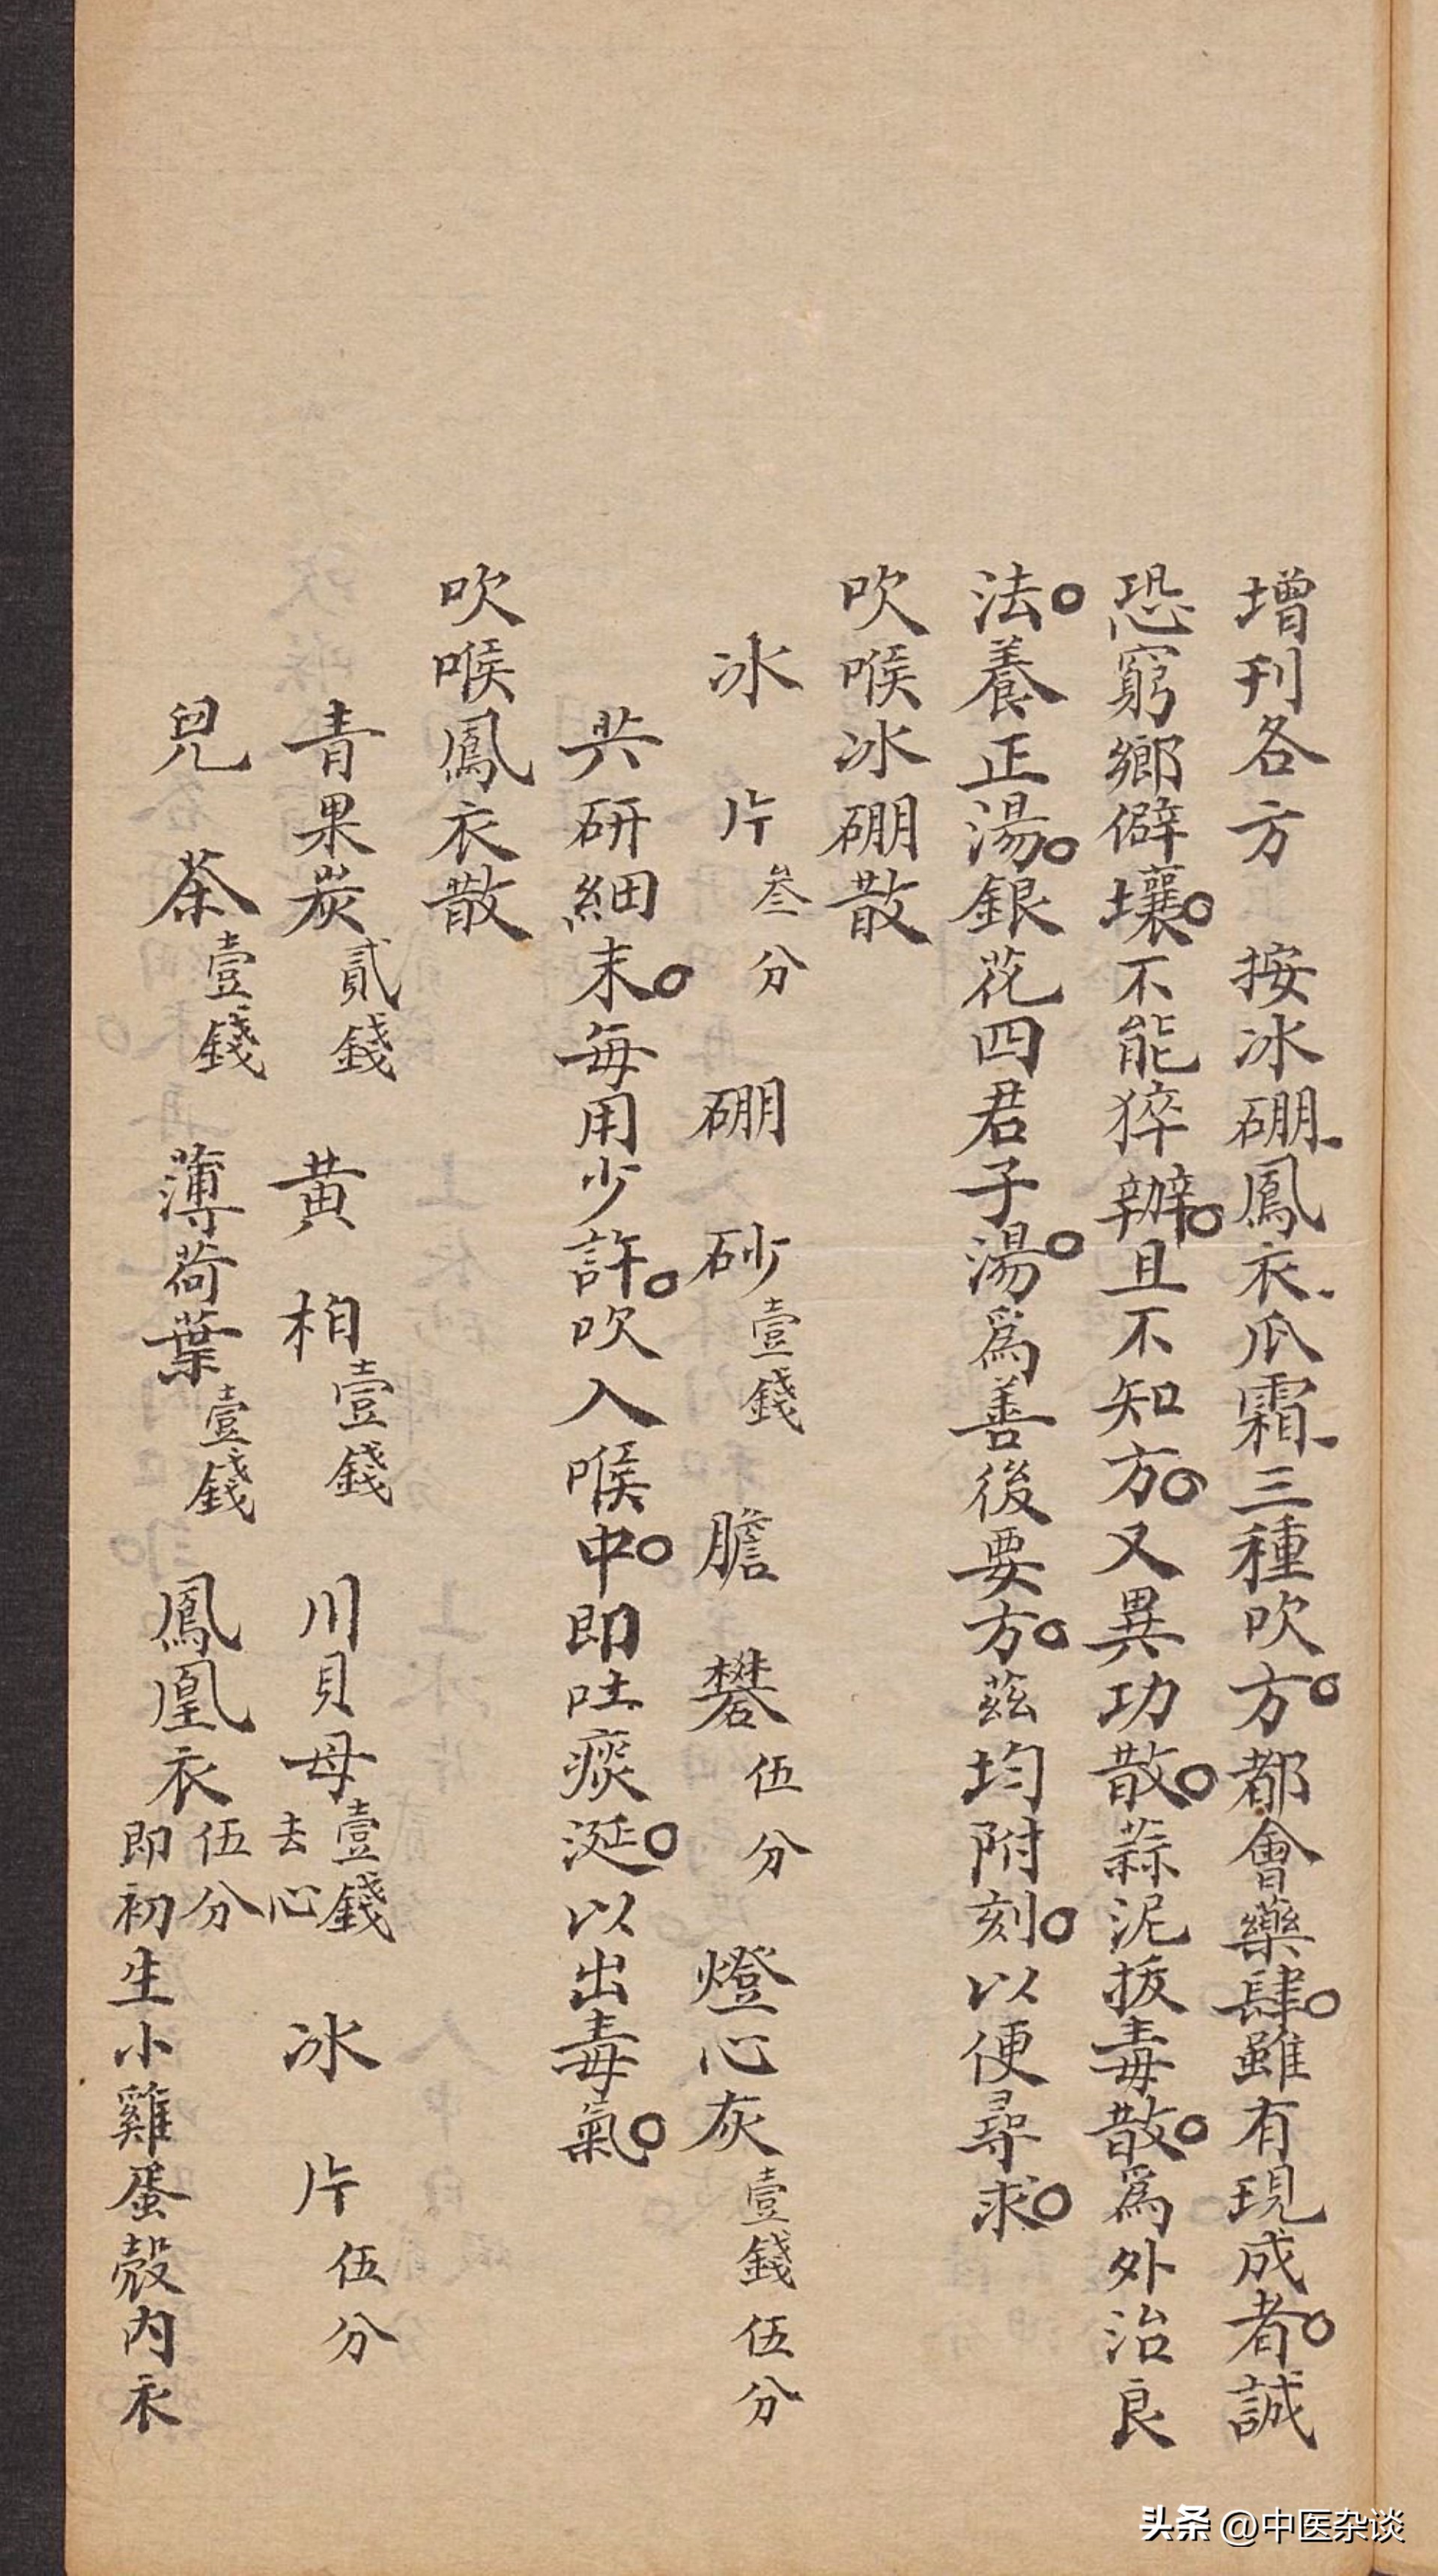 增刊各方　按冰硼鳳衣瓜霜三種吹方。都會藥肆。雖有現成者。誠
恐窮鄉僻壤。不能猝辦。且不知方。又異功散。蒜泥拔毒散。為外治良
法。養正湯。銀花四君子湯。為善後要方。茲均附刻。以便尋求。
吹喉冰硼散
冰片叁分　硼砂壹錢　膽礬伍分　燈心灰壹錢伍分
共研細末。每用少許。吹入喉中。即吐痰涎。以出毒氣。
吹喉鳳衣散
青果炭貳錢　黃柏壹錢　川貝母壹錢去心　冰片伍分
兒茶壹錢　薄荷葉壹錢　鳳凰衣伍分即初生小雞蛋殼內衣
头条 @中医杂谈